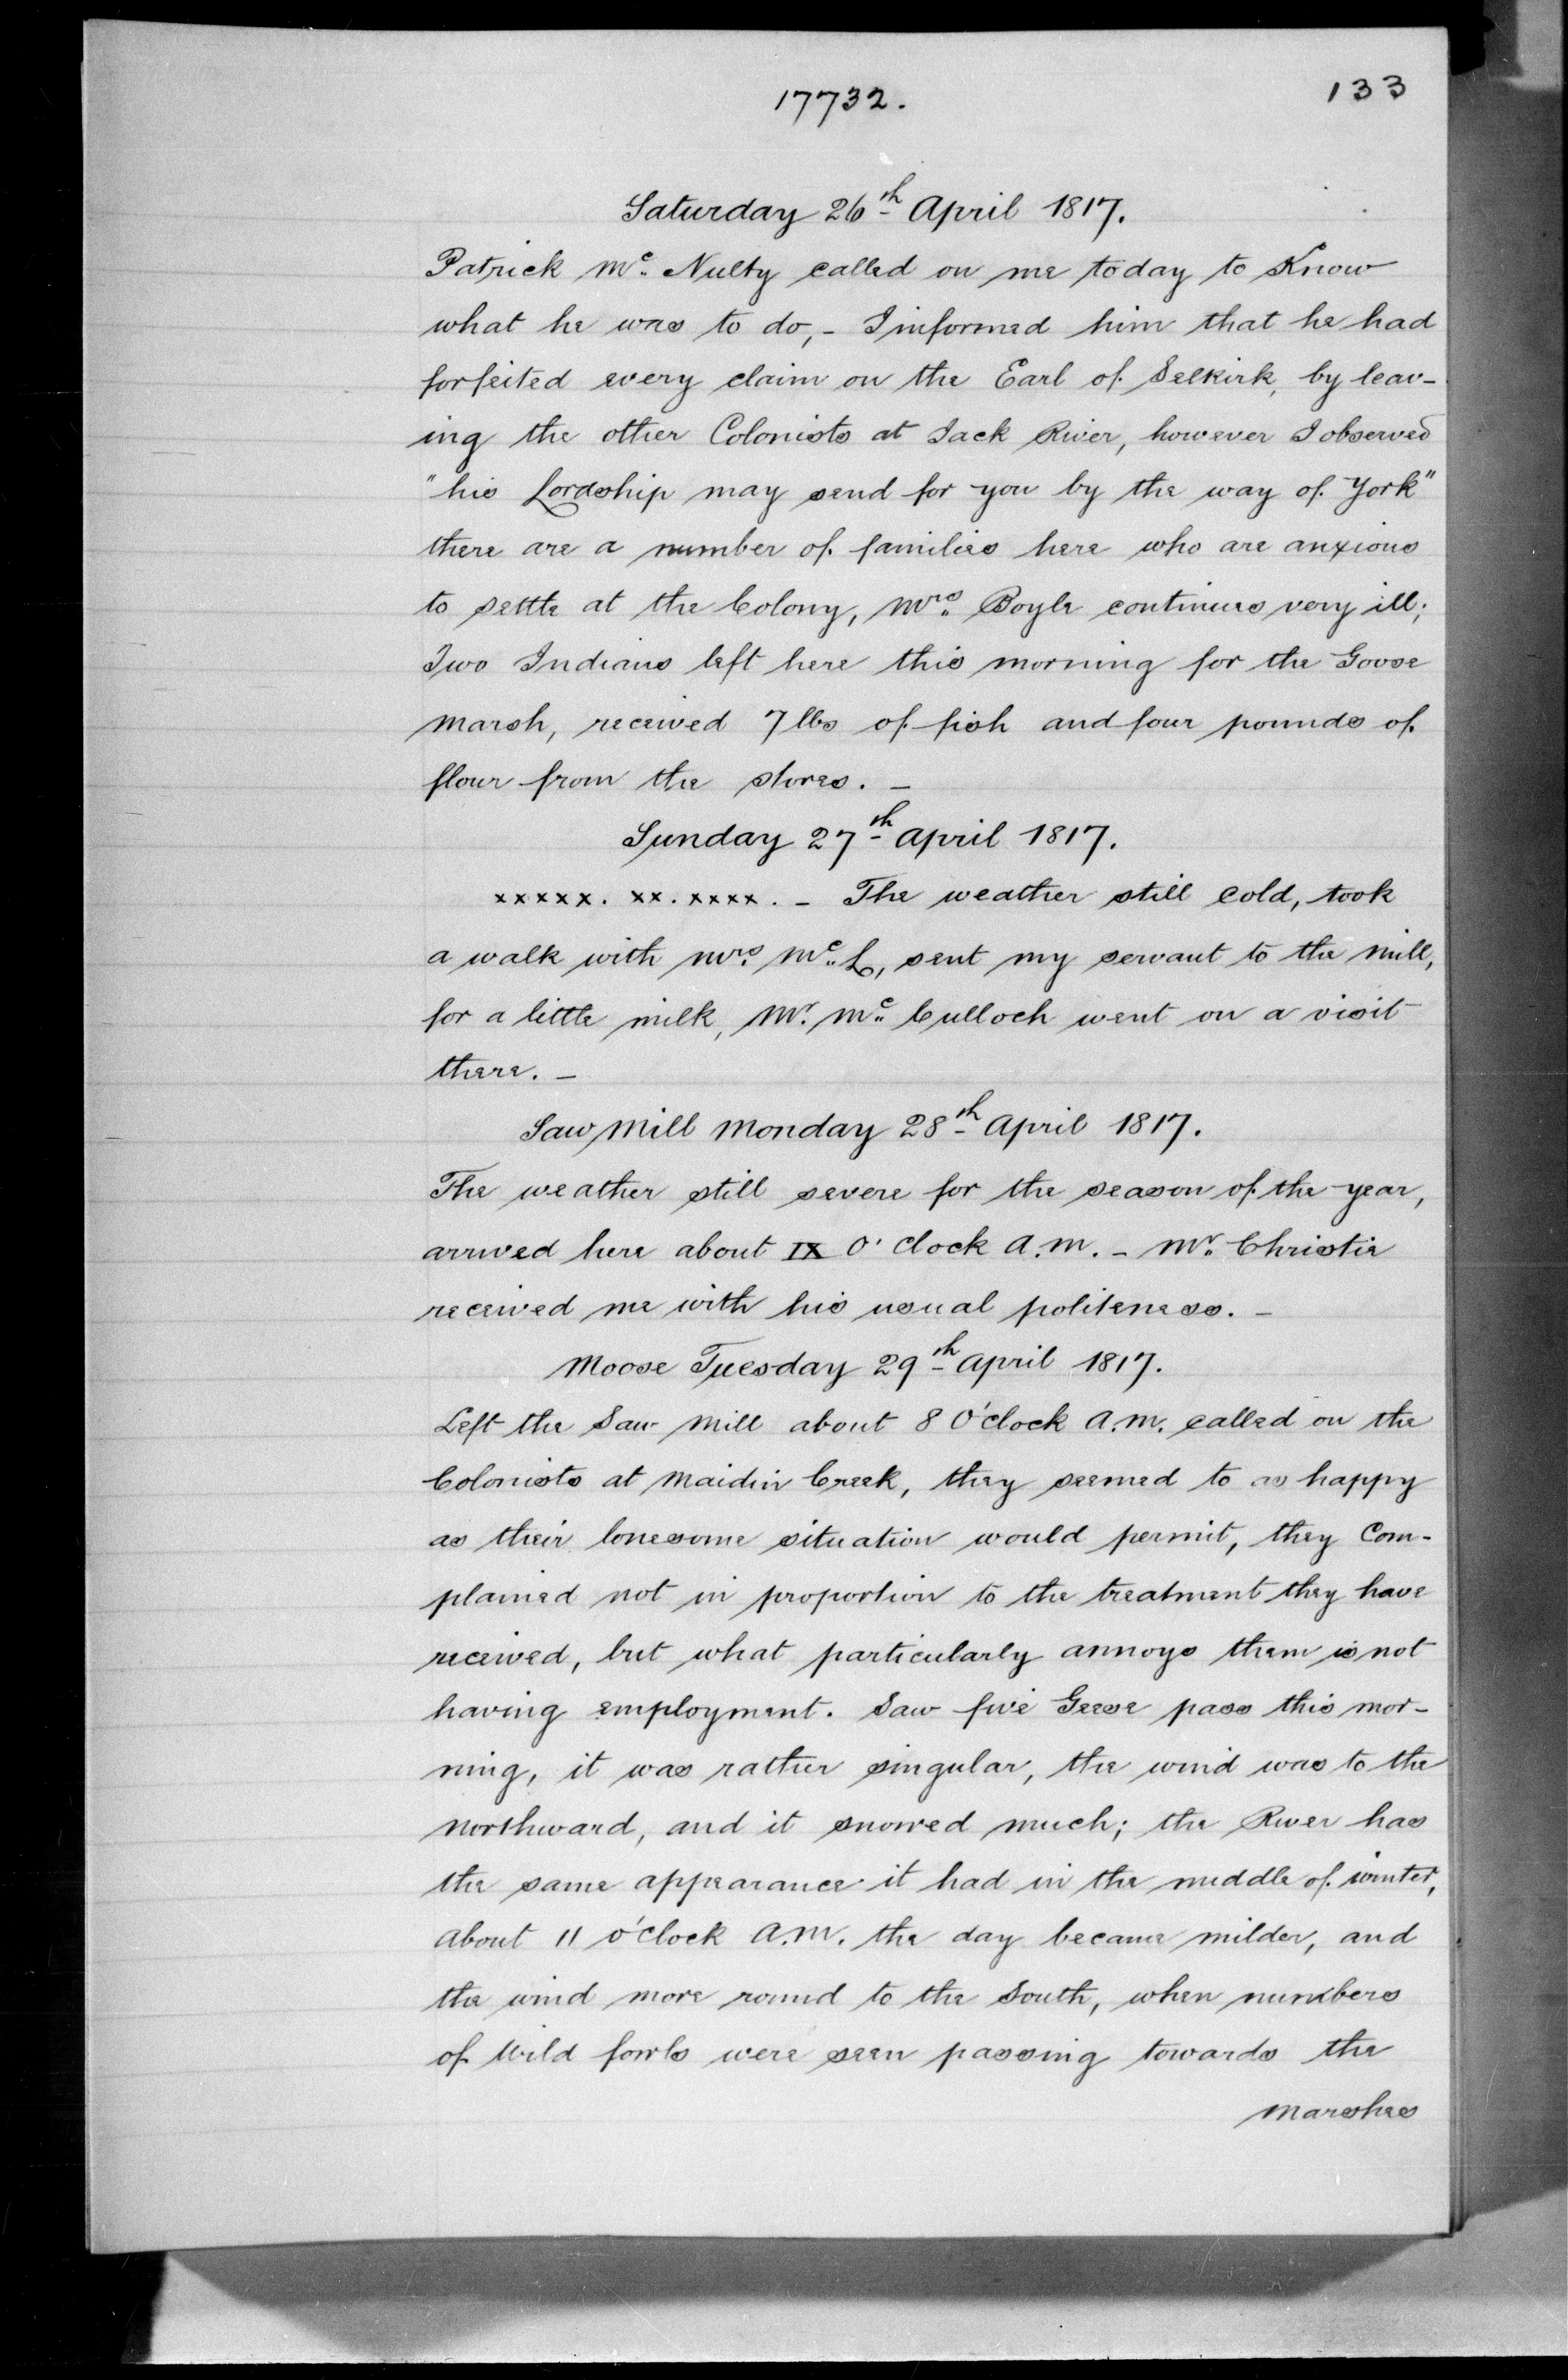 17732.
133
Saturday 26th April 1817.
Patrick Mc. Nulty called on me today to Know
what he was to do, - I informed him that he had
forfeited every claim on the Earl of Selkirk, by leav-
ing the other Colonists at Jack River, however I observed
"his Lordship may send for you by the way of York"
there are a number of families here who are anxious
to settle at the Colony, Mrs. Boyle continues very ill;
Two Indians left here this morning for the Goose
marsh, received 7 lbs of fish and four pounds of
flour from the stores. -
Sunday 27th April 1817.
xxxxx. xx. xxxx. - The weather still cold, took
a walk with Mrs. Mc. L, sent my servant to the mill,
for a little milk, Mr. Mc. Culloch went on a visit
there. -
Saw Mill Monday 28th April 1817.
The weather still severe for the season of the year,
arrived here about IX O'clock A.M. - Mr. Christie
received me with his usual politeness. -
Moose Tuesday 29th April 1817.
Left the Saw Mill about 8 O'clock A.M. called on the
Colonists at Maidin Creek, they seemed to as happy
as their lonesome situation would permit, they Com-
plained not in proportion to the treatment they have
received, but what particularly annoys them is not
having employment. Saw five Geese pass this mor-
ning, it was rather singular, the wind was to the
northward, and it snowed much; the River has
the same appearance it had in the middle of winter,
about 11 o'clock A.M. the day became milder, and
the wind more round to the South, when numbers
of Wild fowls were seen passing towards the
marshes